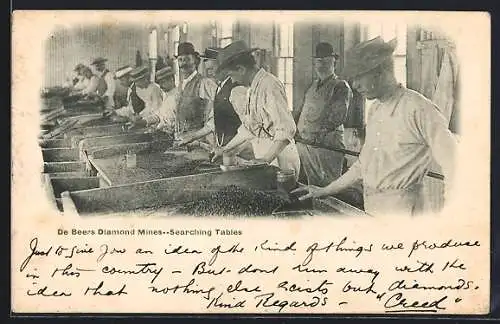 De Beers Diamond Mines--Searching Tables
Just to give you an idea of the kind of things we produce
in this country - But dont run away with the
idea that nothing else exists but diamonds.
Kind Regards - "Creed"